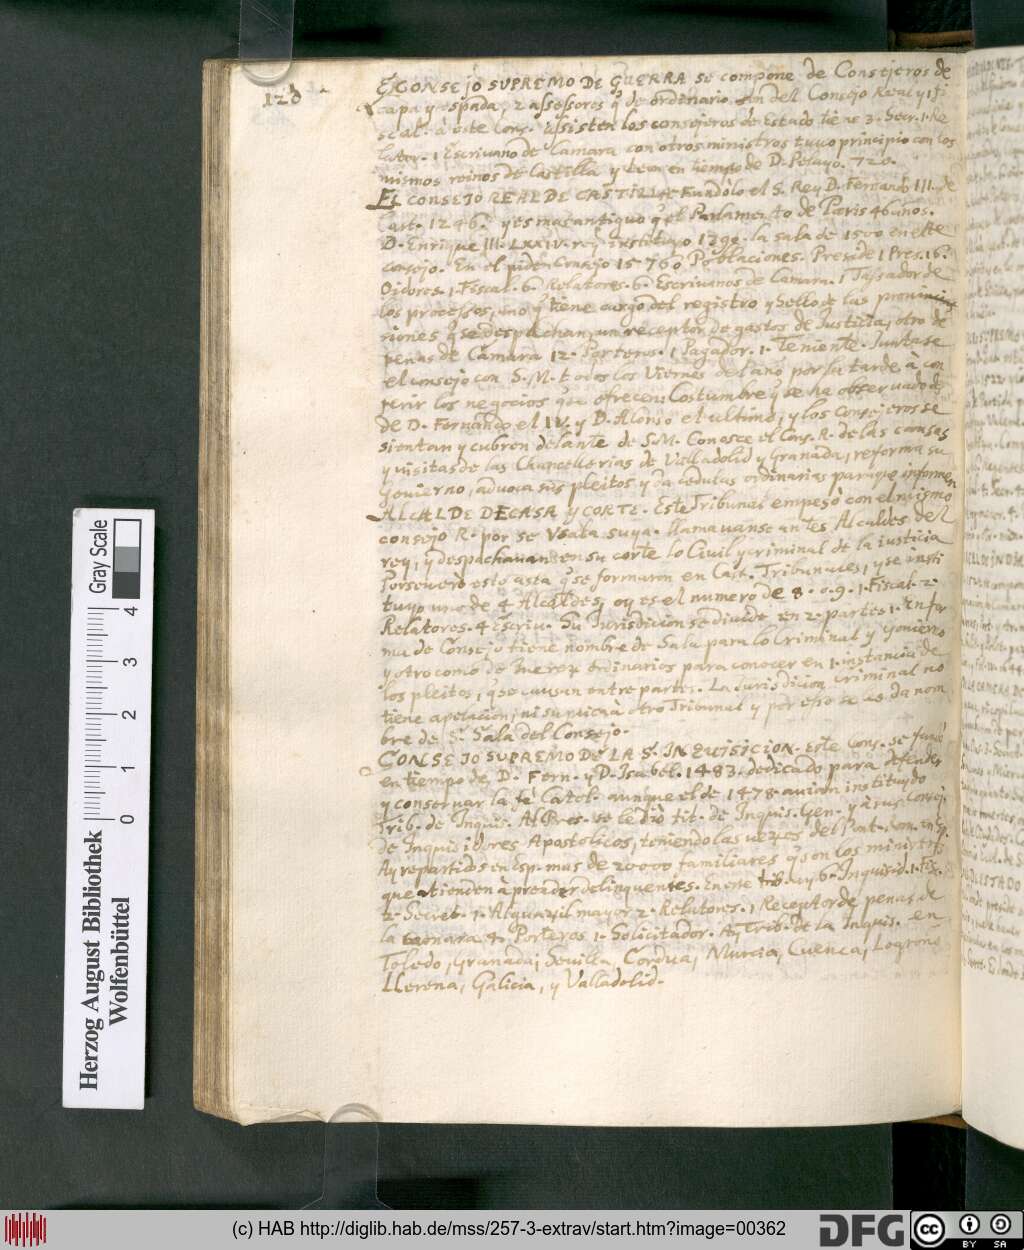 128
EL CONSEJO SUPREMO DE GUERRA se compone de Consejeros de
capa y espada, 2 assessores q̃ de ordinario son del Consejo Real y 1 fi
scal. à este Cons. assisten los consejeros de Estado tiene 3. Secr. 1. Re
lator. 1 Escrivano de Camara con otros ministros tuvo principio con los
mismos reinos de Castilla y Leon en tiempo de D. Pelayo. 720.
EL CONSEJO REAL DE CASTILLA Fundòlo el S. Rey D. Fernando III. de
Cast. 1246. y es mas antiguo q̃ el Parlamento de Paris 46 años.
D. Enrique III. LXXIV. rey instituyo 1290. la sala de 1500 en este
consejo. En el piden Consejo 15760 Poblaciones. Preside 1 Pres. 16.
Oidores. 1. Fiscal. 6. Relatores. 6. Escrivanos de Camara. 1 Tassador de
los processos, uno q̃ tiene cargo del registro y sello de las provi
siones q̃ se despachan, un receptor de gastos de Justicia, otro de
penas de Camara 12. Porteros. 1 Pagador. 1. Teniente. Juntase
el consejo con S. M. todos los Viernes del año por la tarde à con
ferir los negocios que ofrecen: Costumbre q̃ se ha observado de
de D. Fernando el IV. y D. Alonso el ultimo, y los Consejeros se
sientan y cubren delante de S. M. Conosce el Cons. R. de las causas
y visitas de las Chancellerias de Valladolid y Granada, reforma su
govierno, advoca sus pleitos y da cedulas ordinarias paraque informen
ALCALDE DE CASA Y CORTE. Este Tribunal empesò con el mismo
consejo R. por se Vsala suya. llamavanse antes Alcaldes del
rey, y despachavan en su corte lo Civil y criminal de la iusticia
Perseverò esto asta q̃ se formaron en Cast. Tribunales, y se insti
tuyo uno de 4 Alcaldes, oy es el numero de 8. o 9. 1. Fiscal. 2.
Relatores. 4 Escriv. Su Jurisdicion se divide en 2. partes 1. En for
ma de Consejo tiene nombre de Sala para lo Criminal y govierno
y otro como de Iueces ordinarios para conocer en 1. instancia de
los pleitos, q̃ se causan entre partes. La Jurisdicion criminal no
tiene apelacion, ni suplica à otro Tribunal y por esso se les da nom
bre de 5ª. Sala del Consejo.
CONSEJO SUPREMO DE LA Sª. INQUISICION. este Cons. se fundò
en tiempo de D. Fern. y D. Isabel. 1483. dedicado para defender
y conservar la fè Catol. aunque el de 1478. avian instituydo
Trib. de Inquis. Al Pres. se le diò tit. de Inquis. Gen. y à sus Consej.
de Inquisidores Apostolicos, teniendo las vezes del Pont. Rom. en Esp.
Ay repartidos en Esp. mas de 20000 familiares q̃ son los ministros
que atienden à prender delinquentes. En este trib. ay 6. Inquisid. 1. Fis.
2. Secret. 1. Alguazil mayor 2. Relatores. 1 Receptor de penas de
la Camara 4. Porteros 1. Solicitador. Ay Trib. de la Inquis. en
Toledo, Granada, Sevilla, Cordua, Murcia, Cuenca, Logroño
Llerena, Galicia, y Valladolid.
Herzog August Bibliothek
Wolfenbüttel
Gray Scale
0 1 2 3 4
(c) HAB http://diglib.hab.de/mss/257-3-extrav/start.htm?image=00362
DFG
cc BY SA